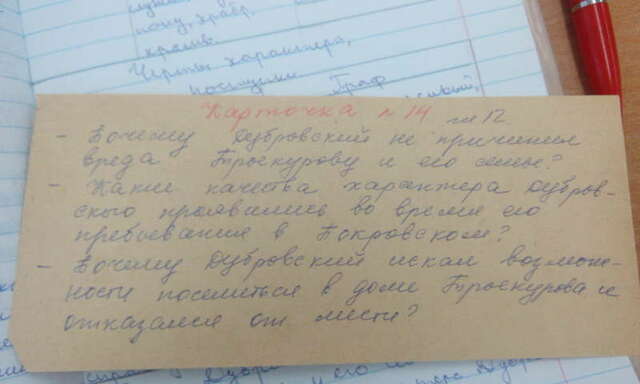 почу, храбр.
Черты характера,
Граф
Карточка n 14 гл 12
- Почему Дубровский не причинил
вреда Троекурову и его семье?
- Какие качества характера Дубров-
ского проявились во время его
пребывания в Покровском?
- Почему Дубровский искал возмож-
ности поселиться в доме Троекурова и
отказался от мести?
и его